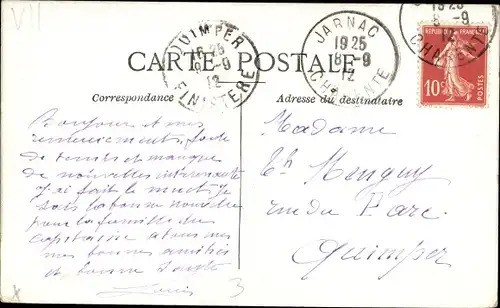 VII
QUIMPER
18 25
8 -9
12
FINISTERE
JARNAC
19 25
8 -9
12
CHARENTE
19 25
8 -9
CHARENTE
REPUBLIQUE FRANCAISE
10c
CARTE POSTALE
Correspondance
Adresse du destinataire
Bonjour et mes
remerciements, faute
de temps et manque
de nouvelles intéressantes
j'ai fait le muet. Je
sais la bonne nouvelle
pour la famille du
capitaine a tous mes
mes bonnes amitiés
et bonne santé
Louis
3
x
Madame
Th Menguy
rue du Parc
Quimper